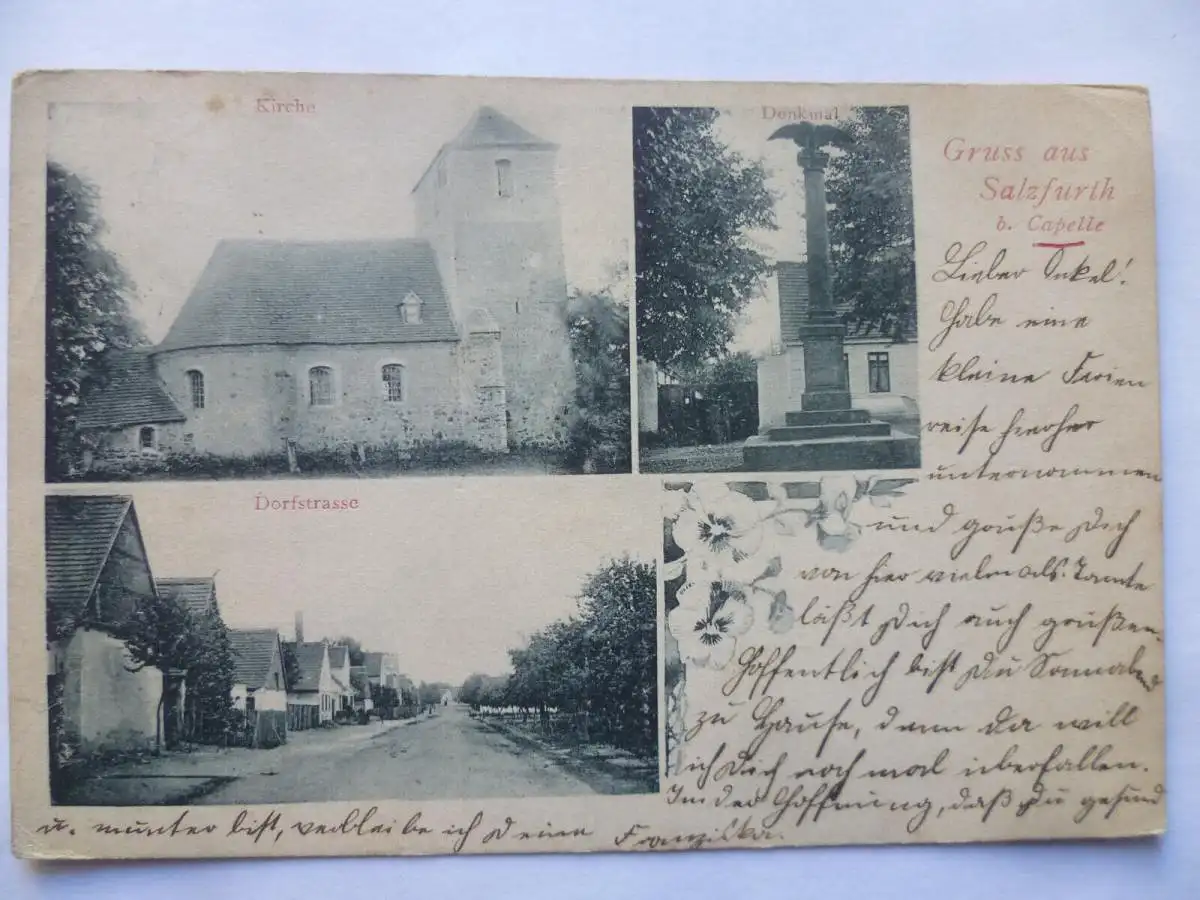 Kirche
Denkmal
Gruss aus
Salzfurth
b. Capelle
Dorfstrasse
Lieber Onkel!
Habe eine
kleine Ferien
reise hierher
unternommen
und grüße Dich
von hier vielmals. Tante
läßt Dich auch grüßen.
Hoffentlich bist Du Sonnabend
zu Hause, denn da will
ich Dich noch mal überfallen.
In der Hoffnung, daß Du gesund
u. munter bist, verbleibe ich Deine Franziska.